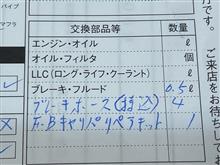 交換部品等 数量
エンジン・オイル ℓ
オイル・フィルタ 個
LLC(ロング・ライフ・クーラント) ℓ
ブレーキ・フルード 0.5ℓ
ブレーキホース(持込) 4
F・Bキャリパリペアキット 1
パイプ
マフラ
ご来店をお待ち
月です。